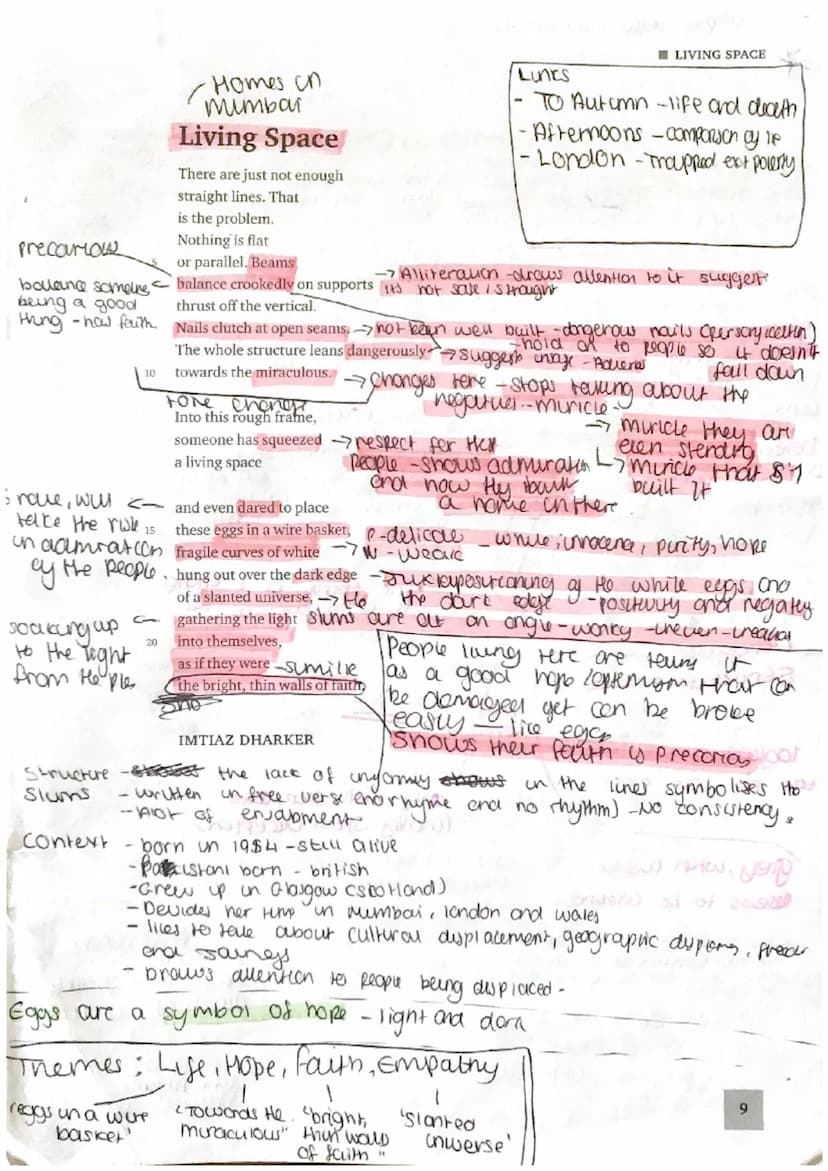 ■ LIVING SPACE
Homes in
mumbai
Living Space
Links
- To Autumn - life and death
- Afternoons - comparison of life
- London - Trapped ext poverty
There are just not enough
straight lines. That
is the problem.
Nothing is flat
or parallel. Beams
balance crookedly on supports
thrust off the vertical.
Nails clutch at open seams.
The whole structure leans dangerously
towards the miraculous.
5
10
precarious
balance someone
being a good
thing - has faith.
→ Alliteration - draws attention to it suggests
its not safe / straight
→ not been well built - dangerous nails (personification)
- hold on to people so it doesn't
fall down
→ suggests - Adverb
→ changes here - stops talking about the
negatives - miricle
tone change
→ miricle they are
even standing
→ miricle that
built it
Into this rough frame,
someone has squeezed
a living space
→ respect for the
people - shows admiration
and how they built
a home in there
and even dared to place
these eggs in a wire basket,
fragile curves of white
hung out over the dark edge
of a slanted universe,
gathering the light
into themselves,
as if they were
the bright, thin walls of faith.
15
20
will
take the risk
in admiration
of the people
soaking up
to the light
from the
- delicate
→ - weak
- white, innocence, purity, hope
- Juxtapositioning of the white eggs and
the dark edge - positivity and negativity
→ the
slums are at an angle - wonky - uneven -
- simile
People living here are it
as a good hope / optemism that can
be damaged yet can be broke
easily - like eggs
Shows their faith is precarious
IMTIAZ DHARKER
Structure - the lack of uniformity shows in the lines symbolises the
slums - written in free verse (no rhyme and no rhythm) - No consistency.
- Alot of enjabment
Context - born in 1954 - still alive
- Pakistani born - british
- Grew up in Glasgow (Scotland)
- Devides her time in Mumbai, london and wales
- likes to talk about cultural displacement, geographic
and Journeys
- Draws attention to people being displaced -
Eggs are a symbol of hope - light and dark
Themes: Life, Hope, faith, Empathy
'eggs in a wire
basket'
"Towards the
miraculous"
"bright,
thin walls
of faith"
'slanted
universe'
9